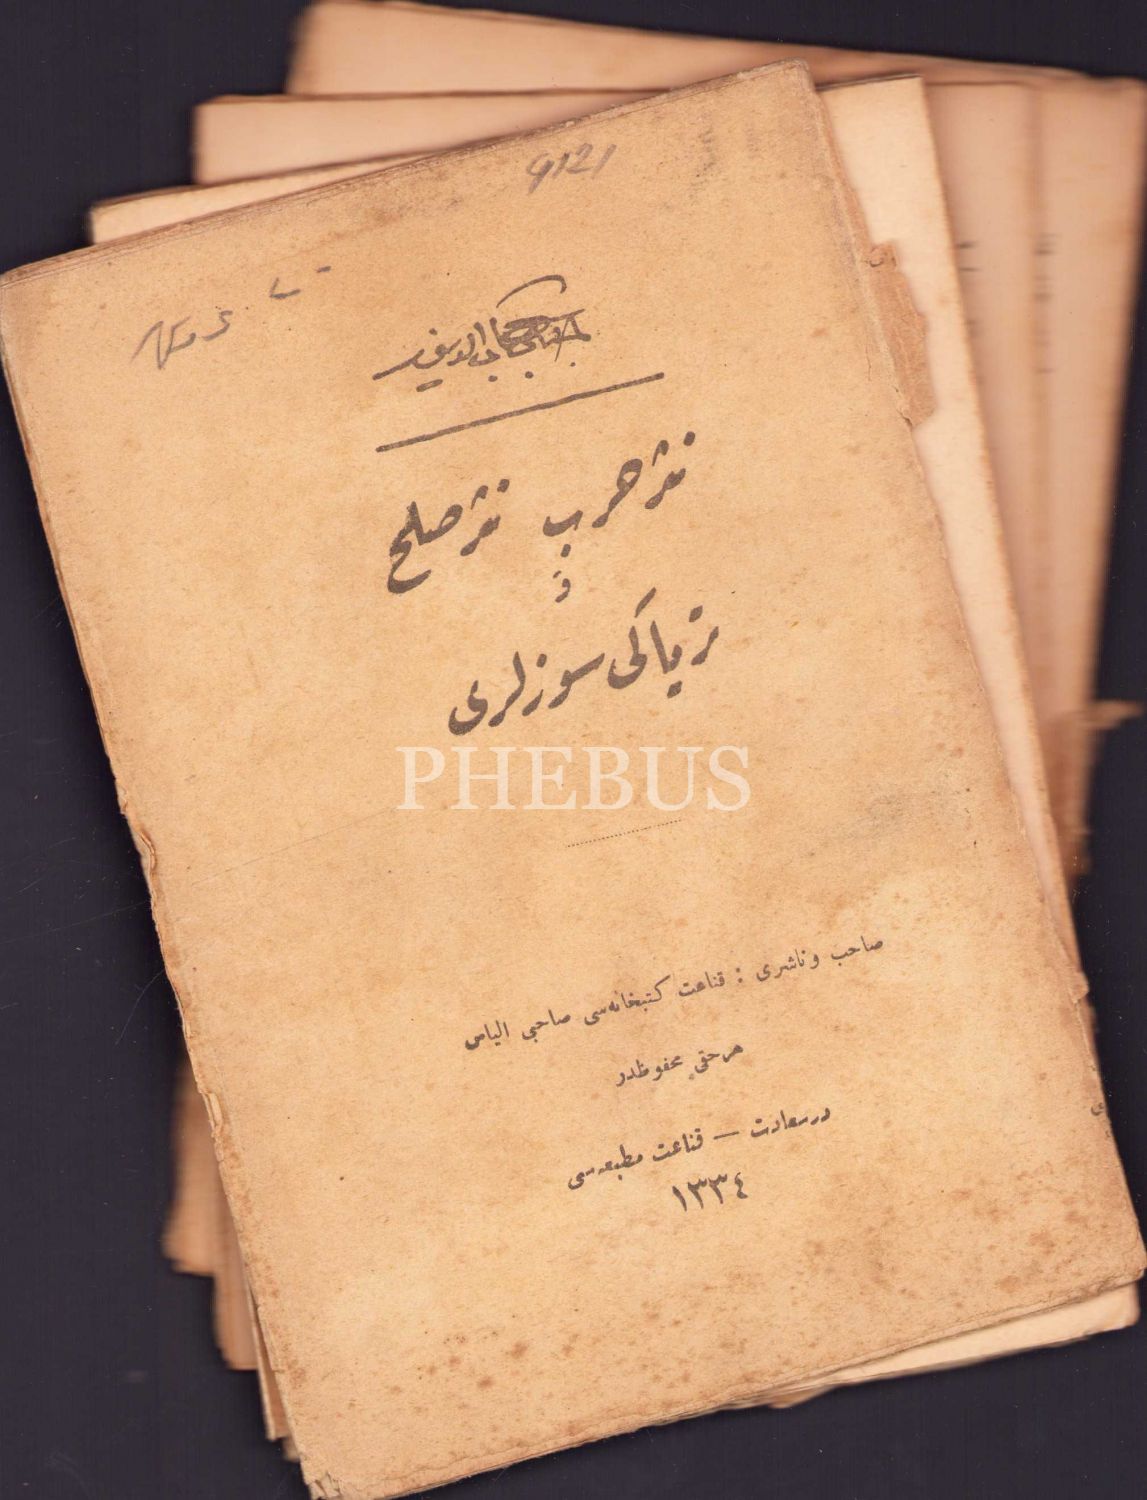 9121
جناب شهاب الدینك
نثر حرب نثر صلح
و
تریاكی سوزلری
PHEBUS
صاحب و ناشری : قناعت كتبخانه‌سی صاحبی الیاس
هر حقی محفوظدر
درسعادت — قناعت مطبعه‌سی
١٣٣٤